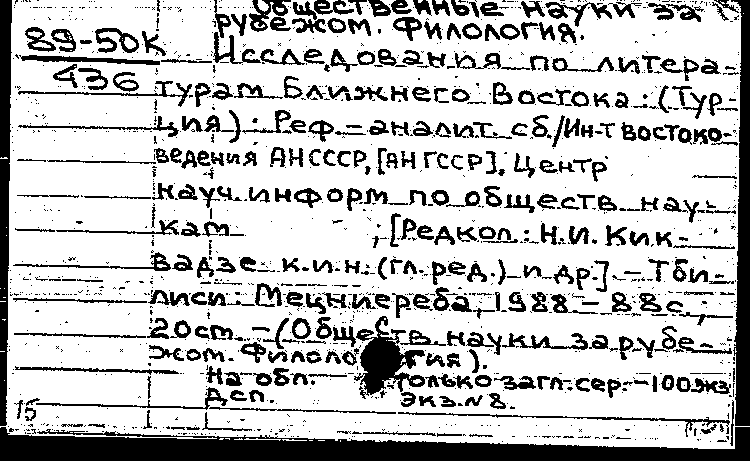 Общественные науки за
рубежом. Филология.
89-50К
436
Исследования по литера-
турам Ближнего Востока: (Тур-
ция): Реф.-аналит. сб./Ин-т востоко-
ведения АНСССР, [АН ГССР], Центр
науч. информ по обществ нау-
кам ; [Редкол.: Н.И. Кик-
вадзе к.и.н. (гл. ред.) и др.]. - Тби-
лиси: Мецниереба, 1988 - 88с.;
20cm - (Обществ науки за рубе-
жом. Филология).
На обл. только загл. сер. - 100экз
Дсп. экз.N8.
15